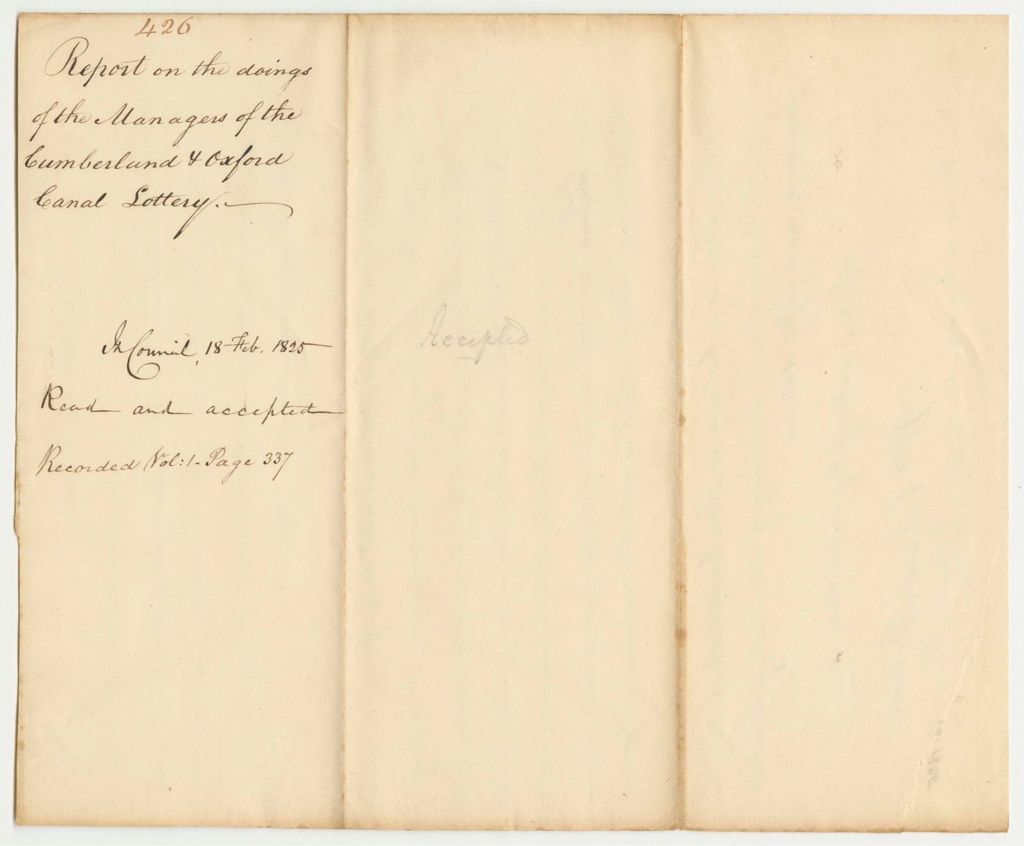 426
Report on the doings
of the Managers of the
Cumberland & Oxford
Canal Lottery.
In Council, 18 Feb. 1825
Read and accepted
Recorded Vol: 1 - Page 337
Accepted